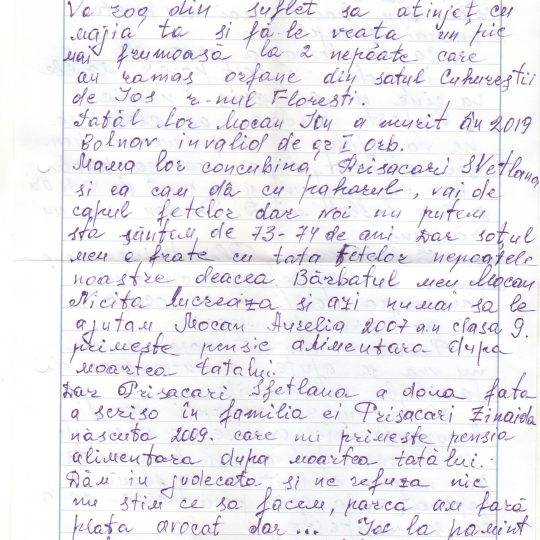 Va rog din suflet sa atinjeț cu
majia ta si fă-le veata un pic
mai frumoasă la 2 nepoate care
au ramas orfane din satul Cuhureștii
de Jos r-nul Florești.
Tatăl lor Mocan Ion a murit în 2019
Bolnav invalid de gr I orb.
Mama lor concubina, Prisacari SVetlana
si ea cam dă cu paharul, vai de
capul fetelor dar noi nu putem
sta sîntem de 73-74 de ani. Dar soțul
meu e frate cu tata fetelor nepoatele
noastre deacea Bărbatul meu Mocan
Nichita lucreaza si azi numai sa le
ajutam Mocan Aurelia 2007 a.n clasa 9.
primeste pensie alimentara dupa
moartea tatalui.
Dar Prisacari Sfetlana a doua fata
a scriso în familia ei Prisacari Zinaida
născuta 2009. care nu primeste pensia
alimentara dupa moartea tatălui.
Dăm in judecata si ne refuza nic
nu stim ce sa facem, parca am fară
plata avocat dar ... Joc la pamint